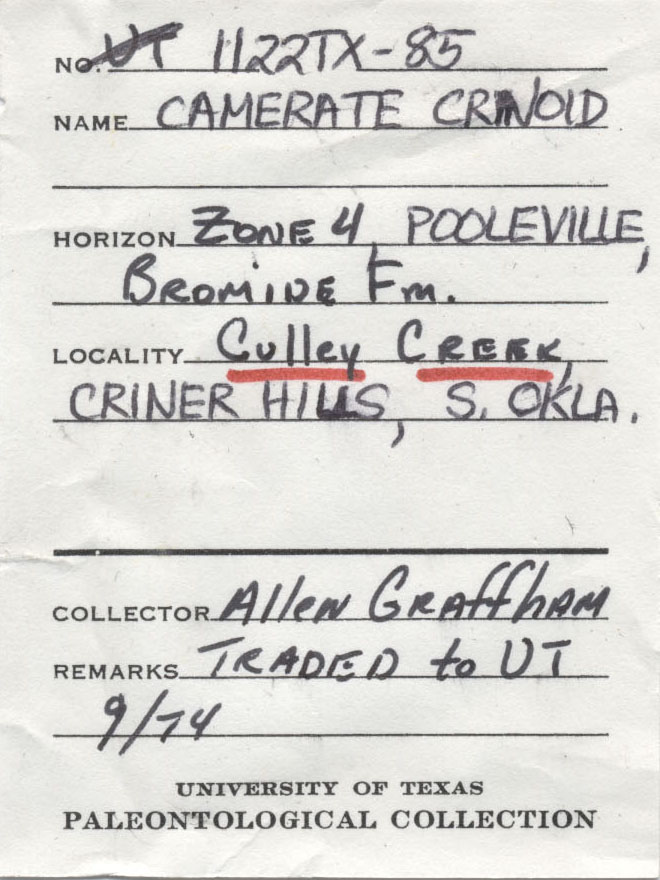 NO. UT 1122TX-85
NAME CAMERATE CRINOID
HORIZON ZONE 4, POOLEVILLE,
BROMIDE Fm.
LOCALITY Culley CREEK,
CRINER HILLS, S. OKLA.
COLLECTOR Allen GRAffhAM
REMARKS TRADED to UT
9/74
UNIVERSITY OF TEXAS
PALEONTOLOGICAL COLLECTION